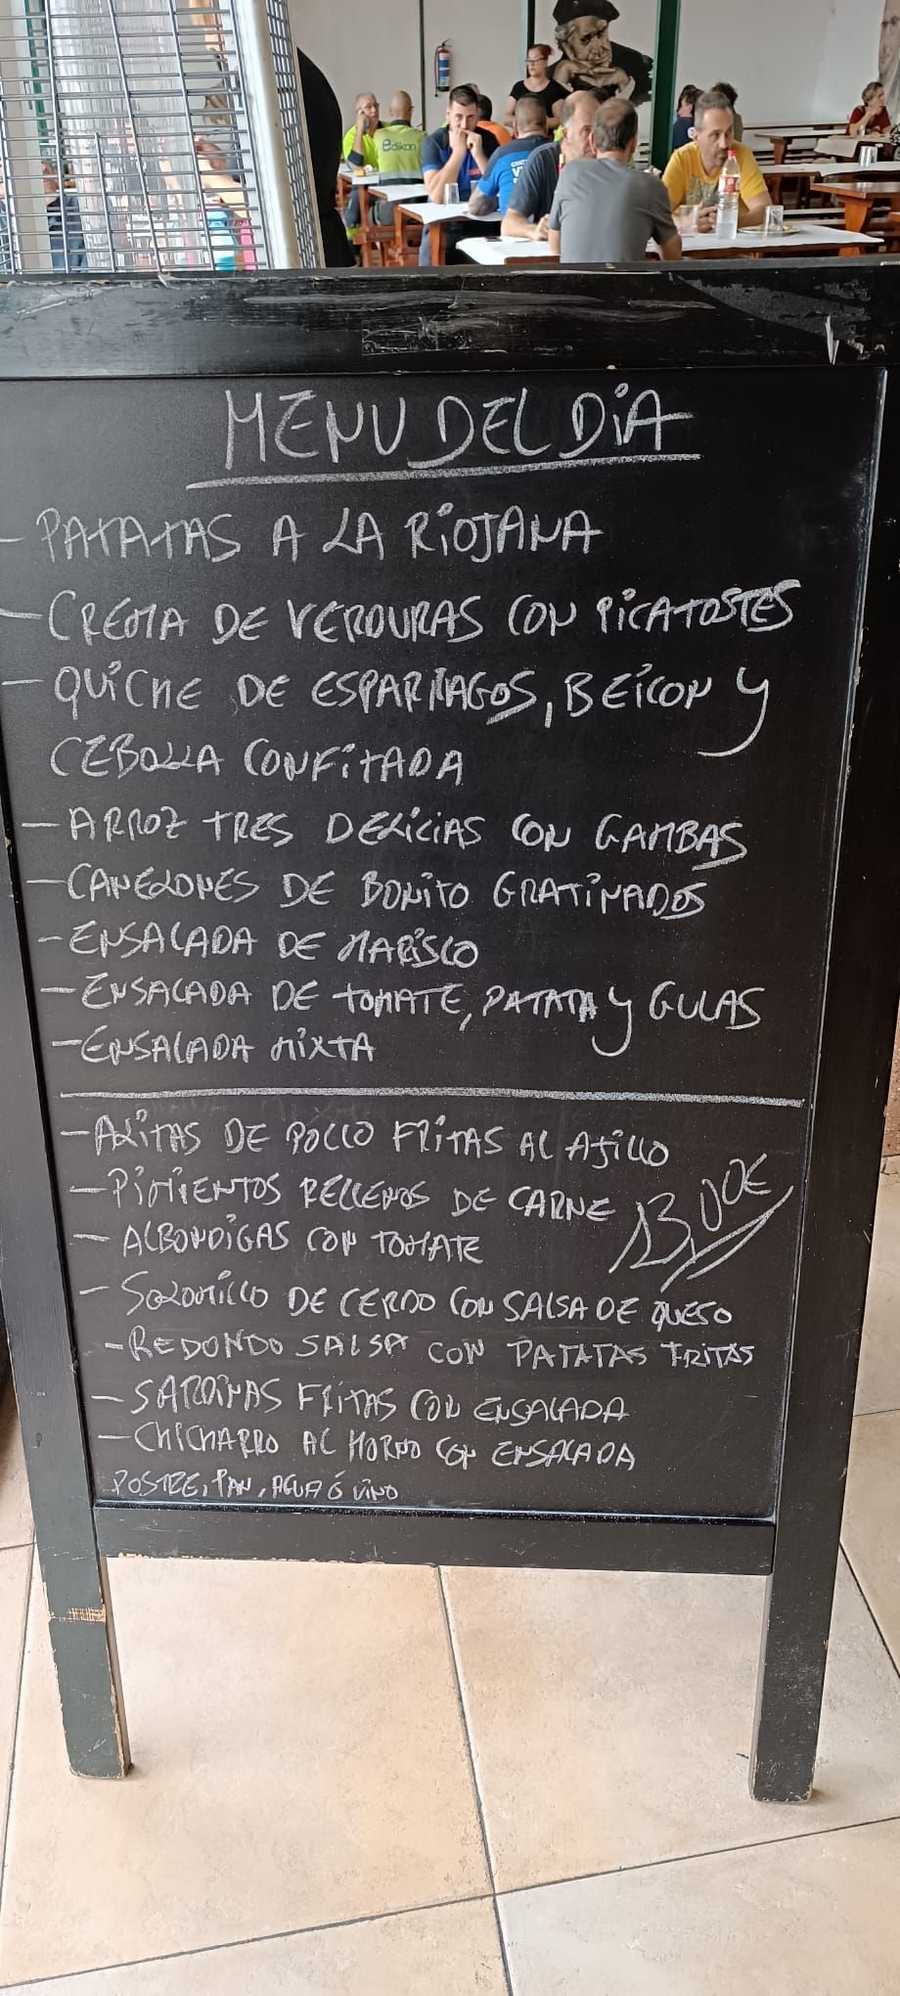 Edikon
MENU DEL DiA
- PATATAS A LA RiOJANA
- CREMA DE VERDURAS CON PICATOSTES
- QUiCHE DE ESPARRAGOS, BEiCON Y
CEBOLLA CONFiTADA
- ARROZ TRES DELiCiAS CON GAMBAS
- CANELONES DE BONiTO GRATiNADOS
- ENSALADA DE MARiSCO
- ENSALADA DE TOMATE, PATATA Y GULAS
- ENSALADA MiXTA
- ALiTAS DE POLLO FRITAS AL AJiLLO
- PiMiENTOS RELLENOS DE CARNE
13,00€
- ALBONDiGAS CON TOMATE
- SOLOMiLLO DE CERDO CON SALSA DE QUESO
- REDONDO SALSA CON PATATAS FRITAS
- SARDINAS FRITAS CON ENSALADA
- CHICHARRO AL HORNO CON ENSALADA
POSTRE, PAN, AGUA Ó ViNO